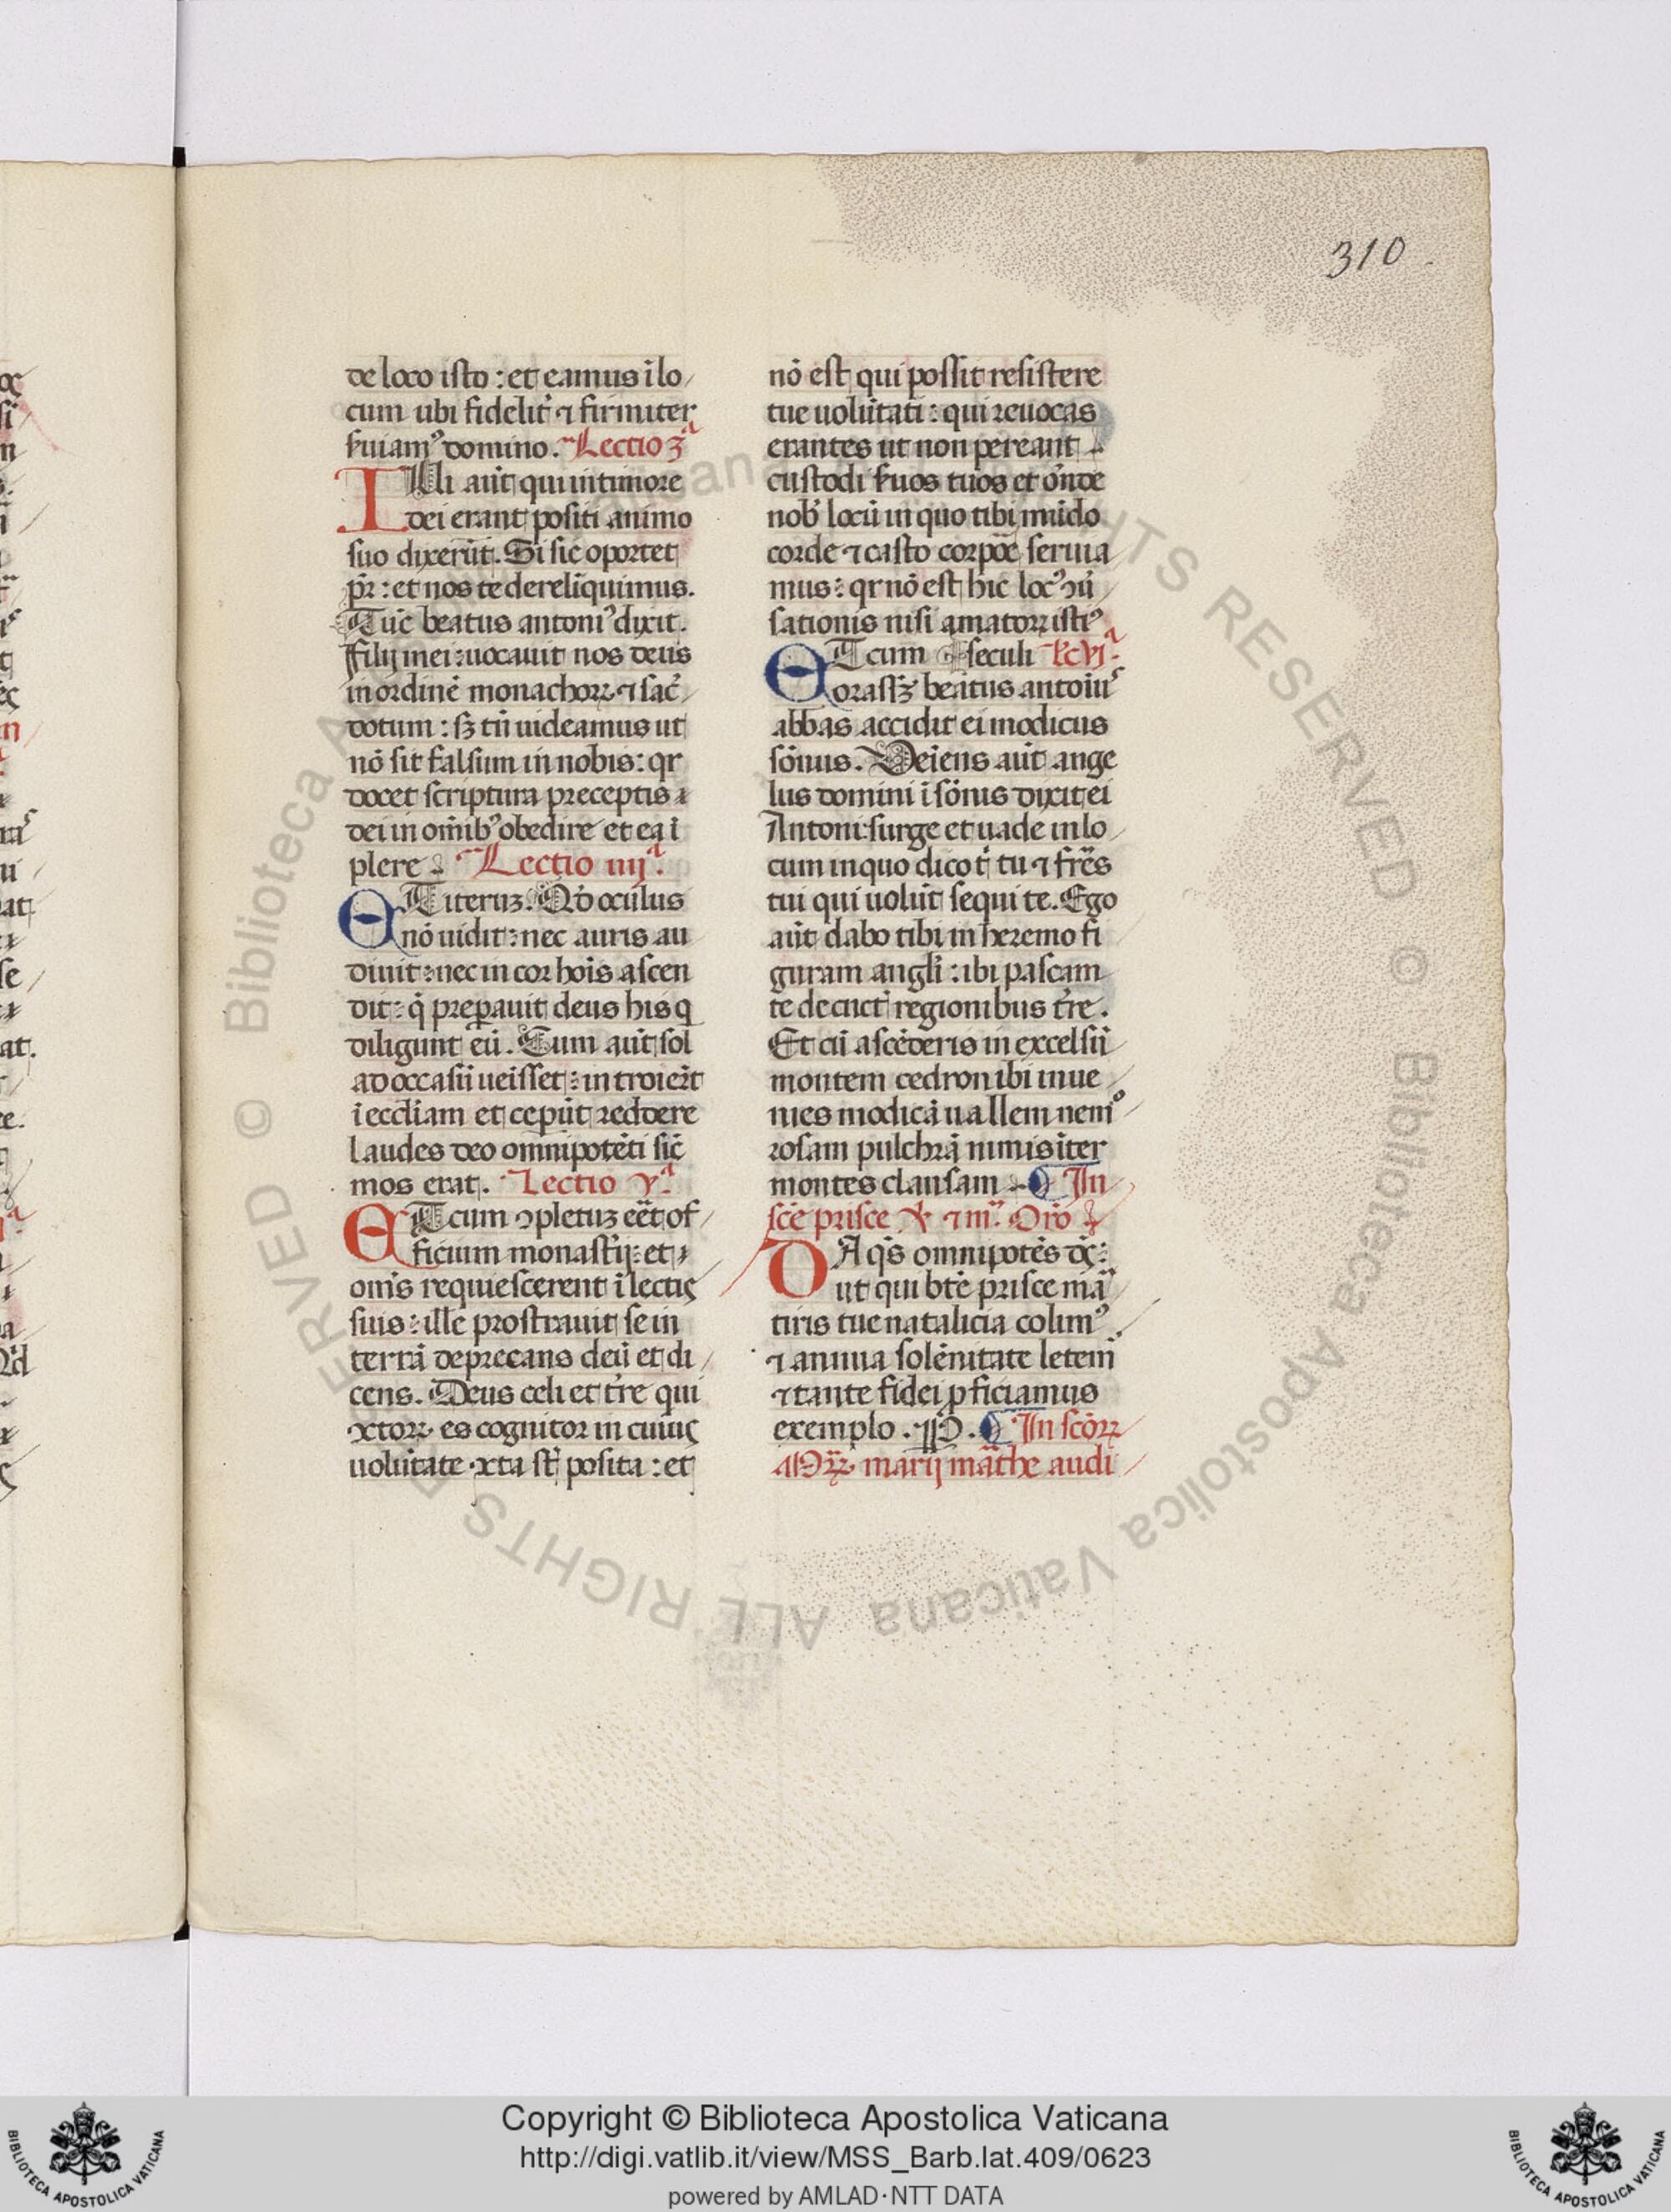 310
de loco isto : et eamus ĩ lo
cum ubi fidelit᷑ ⁊ firmiter
ẜuiamꝰ domino. Lectio 3ᵃ
Illi aut̃ qui in timore
dei erant positi animo
suo dixerũt. Si sic oportet
pr̃ : et nos te derelĩquimus.
Tũc beatus antoniꝰ dixit.
Filij mei : uocauit nos deus
in ordinẽ monachoꝝ ⁊ sac̃
dotum : sꝫ tñ uideamus ut
nõ sit falsum in nobis : qr
docet scriptura preceptis
dei in om̃ibꝰ obedire et ea ĩ
plere Lectio iiijᵃ.
ET iteruꝫ. Qd̾ oculus
nõ uidit : nec auris au
diuit : nec in cor hoĩs ascen
dit : q̃ preꝑauit deus his q̃
diligunt eũ. Cum aut̃ sol
ad occasũ ueĩsset : introier̃t
ĩ eccl̃iam et ceper̃ũt reddere
laudes deo omnipotẽti sic̃
mos erat. Lectio vᵃ.
ET cum ↄpletuꝫ eẽt of
ficium monast̾ij : et
om̃s requiescerent ĩ lectis
suis : ille prostrauit se in
terrã deprecans deũ et di
cens. Deus celi et tr̃e qui
xtoꝝ es cognitor in cuius
uolũtate xta st̃ posita : et
nõ est qui possit resistere
tue uolũtati : qui reuocas
erantes ut non pereant
custodi ẜuos tuos et oñde
nob̾ locũ in quo tibi mũdo
corde ⁊ casto corpoẽ seruia
mus : qr nõ est hic locꝰ ↄũ
sationis nisi amatoꝝ istiꝰ
ET cum seculi Lc̃ vjᵃ.
orassꝫ beatus antoniꝰ
abbas accidit ei modicus
sõnus. Veĩens aut̃ ange
lus domini ĩ sõnis dixit ei
Antoni : surge et uade in lo
cum in quo dico t̾ tu ⁊ fr̃es
tui qui uolũt sequi te. Ego
aut̃ dabo tibi in heremo fi
guram angl̾i : ibi pascam
te de cũct̾ regionibus tr̃e.
Et cũ ascẽderis in excelsũ
montem cedron ibi inue
nies modicã uallem nemᵒ
rosam pulchrã nimis iter
montes clausam In
sc̃e prisce v̾ ⁊ m̃. Orõ
DA q̃s omnipotẽs dc̃ :
ut qui btẽ prisce ma᷑
tiris tue natalicia colimꝰ
⁊ annua solẽnitate letem᷑
⁊ tante fidei ꝓficiamus
exemplo. P. In scõꝝ
Mꝝ marij mathe audi
Copyright © Biblioteca Apostolica Vaticana
http://digi.vatlib.it/view/MSS_Barb.lat.409/0623
powered by AMLAD·NTT DATA
BIBLIOTECA APOSTOLICA VATICANA
BIBLIOTECA APOSTOLICA VATICANA